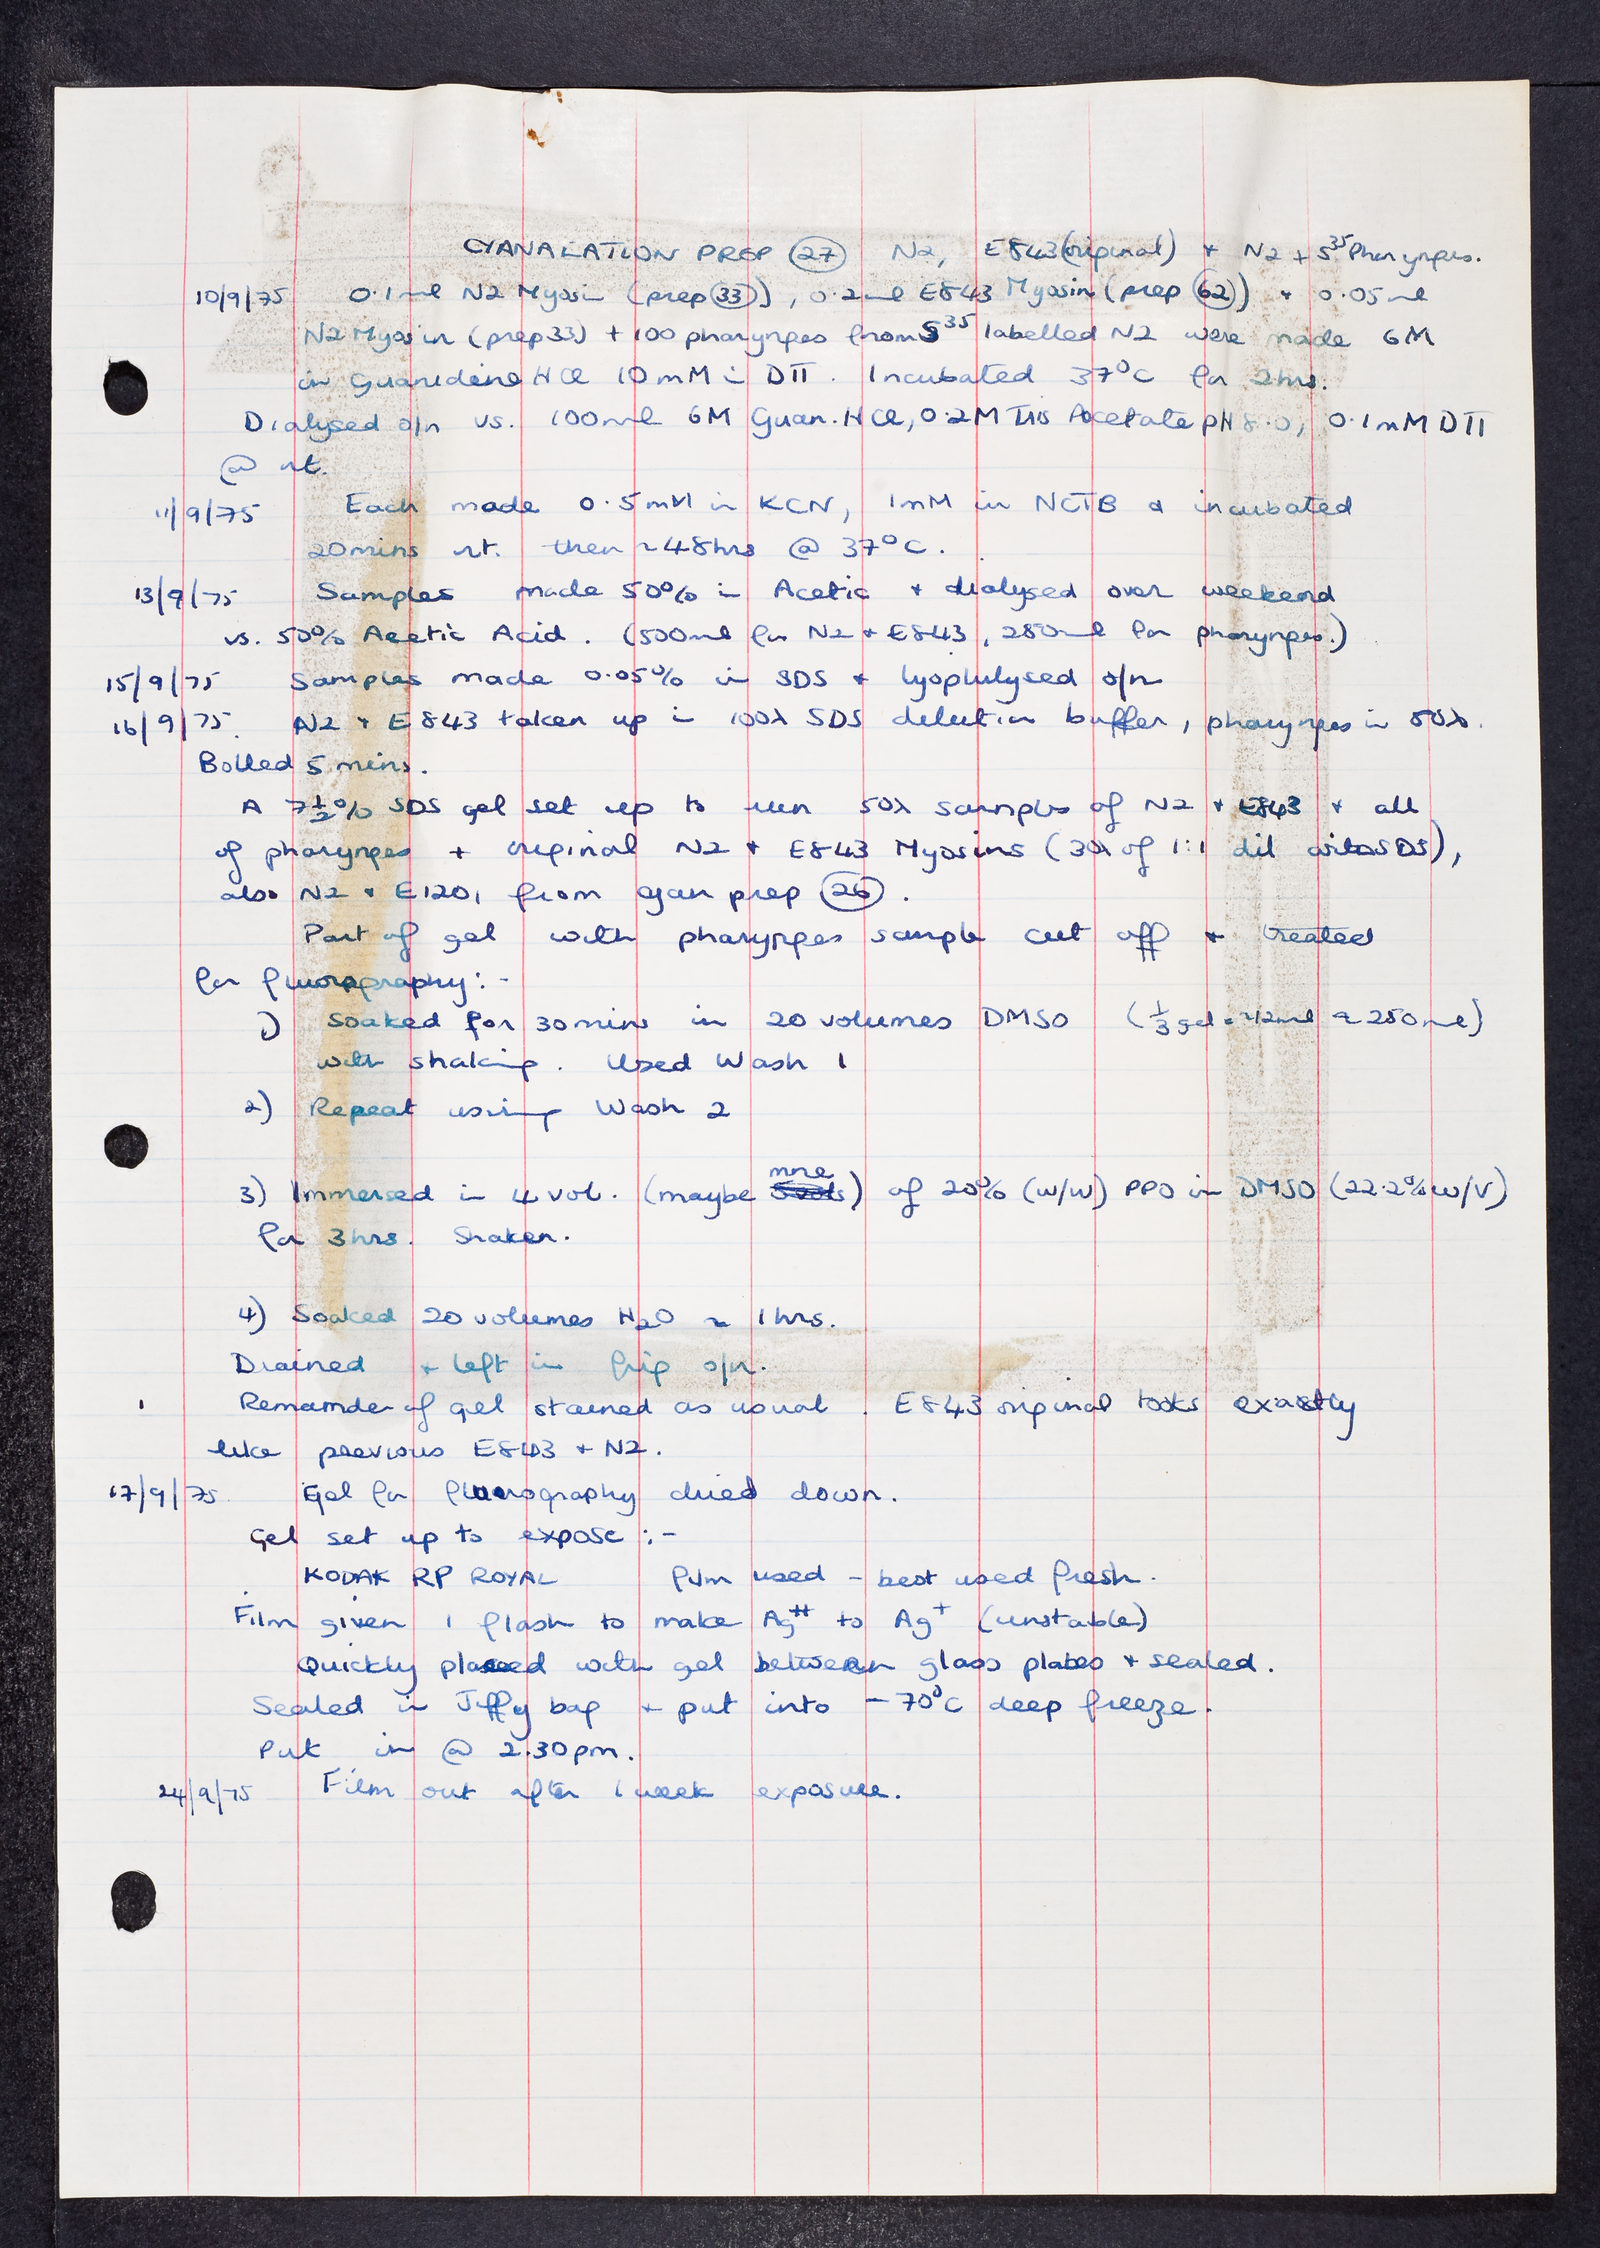 CYANALATION PREP 27 N2, E843(original) + N2 + S35 Pharynges.
10/9/75 0.1ml N2 Myosin (prep 33), 0.2ml E843 Myosin (prep 62) + 0.05ml
N2 Myosin (prep 33) + 100 pharynges from S35 labelled N2 were made 6M
in Guanidine HCl 10mM in DTT. Incubated 37°C for 2hrs.
Dialysed o/n vs. 100ml 6M Guan.HCl, 0.2M Tris Acetate pH 8.0, 0.1mM DTT
@ rt.
11/9/75 Each made 0.5mM in KCN, 1mM in NCTB & incubated
20mins rt. then ~48hrs @ 37°C.
13/9/75 Samples made 50% in Acetic + dialysed over weekend
vs. 50% Acetic Acid. (500ml for N2 + E843, 250ml for pharynges.)
15/9/75 Samples made 0.05% in SDS + lyophilysed o/n
16/9/75. N2 + E843 taken up in 100λ SDS dilution buffer, pharynges in 50λ.
Boiled 5 mins.
A 7½% SDS gel set up to run 50λ samples of N2 + E843 + all
of pharynges + original N2 + E843 Myosins (30λ of 1:1 dil with SDS),
also N2 + E1201 from cyan prep 26.
Part of gel with pharynges sample cut off + treated
for fluorography:-
1) Soaked for 30mins in 20 volumes DMSO (⅓ gel = ~12ml ≈ 250ml)
with shaking. Used Wash 1
2) Repeat using Wash 2
more
3) Immersed in 4 vol. (maybe ) of 20% (w/w) PPO in DMSO (22.2% w/v)
for 3hrs. Shaken.
4) Soaked 20 volumes H2O ~ 1hrs.
Drained + left in frig o/n.
Remainder of gel stained as usual. E843 original looks exactly
like previous E843 + N2.
17/9/75. Gel for fluorography dried down.
Gel set up to expose :-
KODAK RP ROYAL film used - best used fresh.
Film given 1 flash to make Ag++ to Ag+ (unstable)
Quickly placed with gel between glass plates + sealed.
Sealed in Jiffy bag + put into -70°C deep freeze.
Put in @ 2.30pm.
24/9/75 Film out after 1 week exposure.